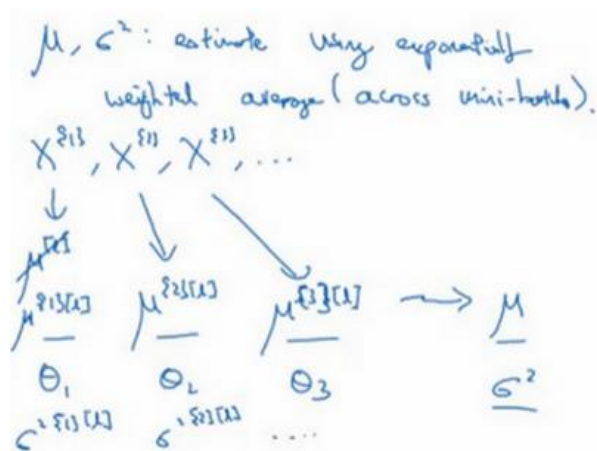 μ, σ²: estimate using exponentially
weighted average (across mini-batches).
X^{1}, X^{2}, X^{3}, ...
↓ ↘ ↘
μ^[l]
μ^{1}[l] μ^{2}[l] μ^{3}[l] → μ
θ₁ θ₂ θ₃ σ²
σ²^{1}[l] σ²^{2}[l] ....